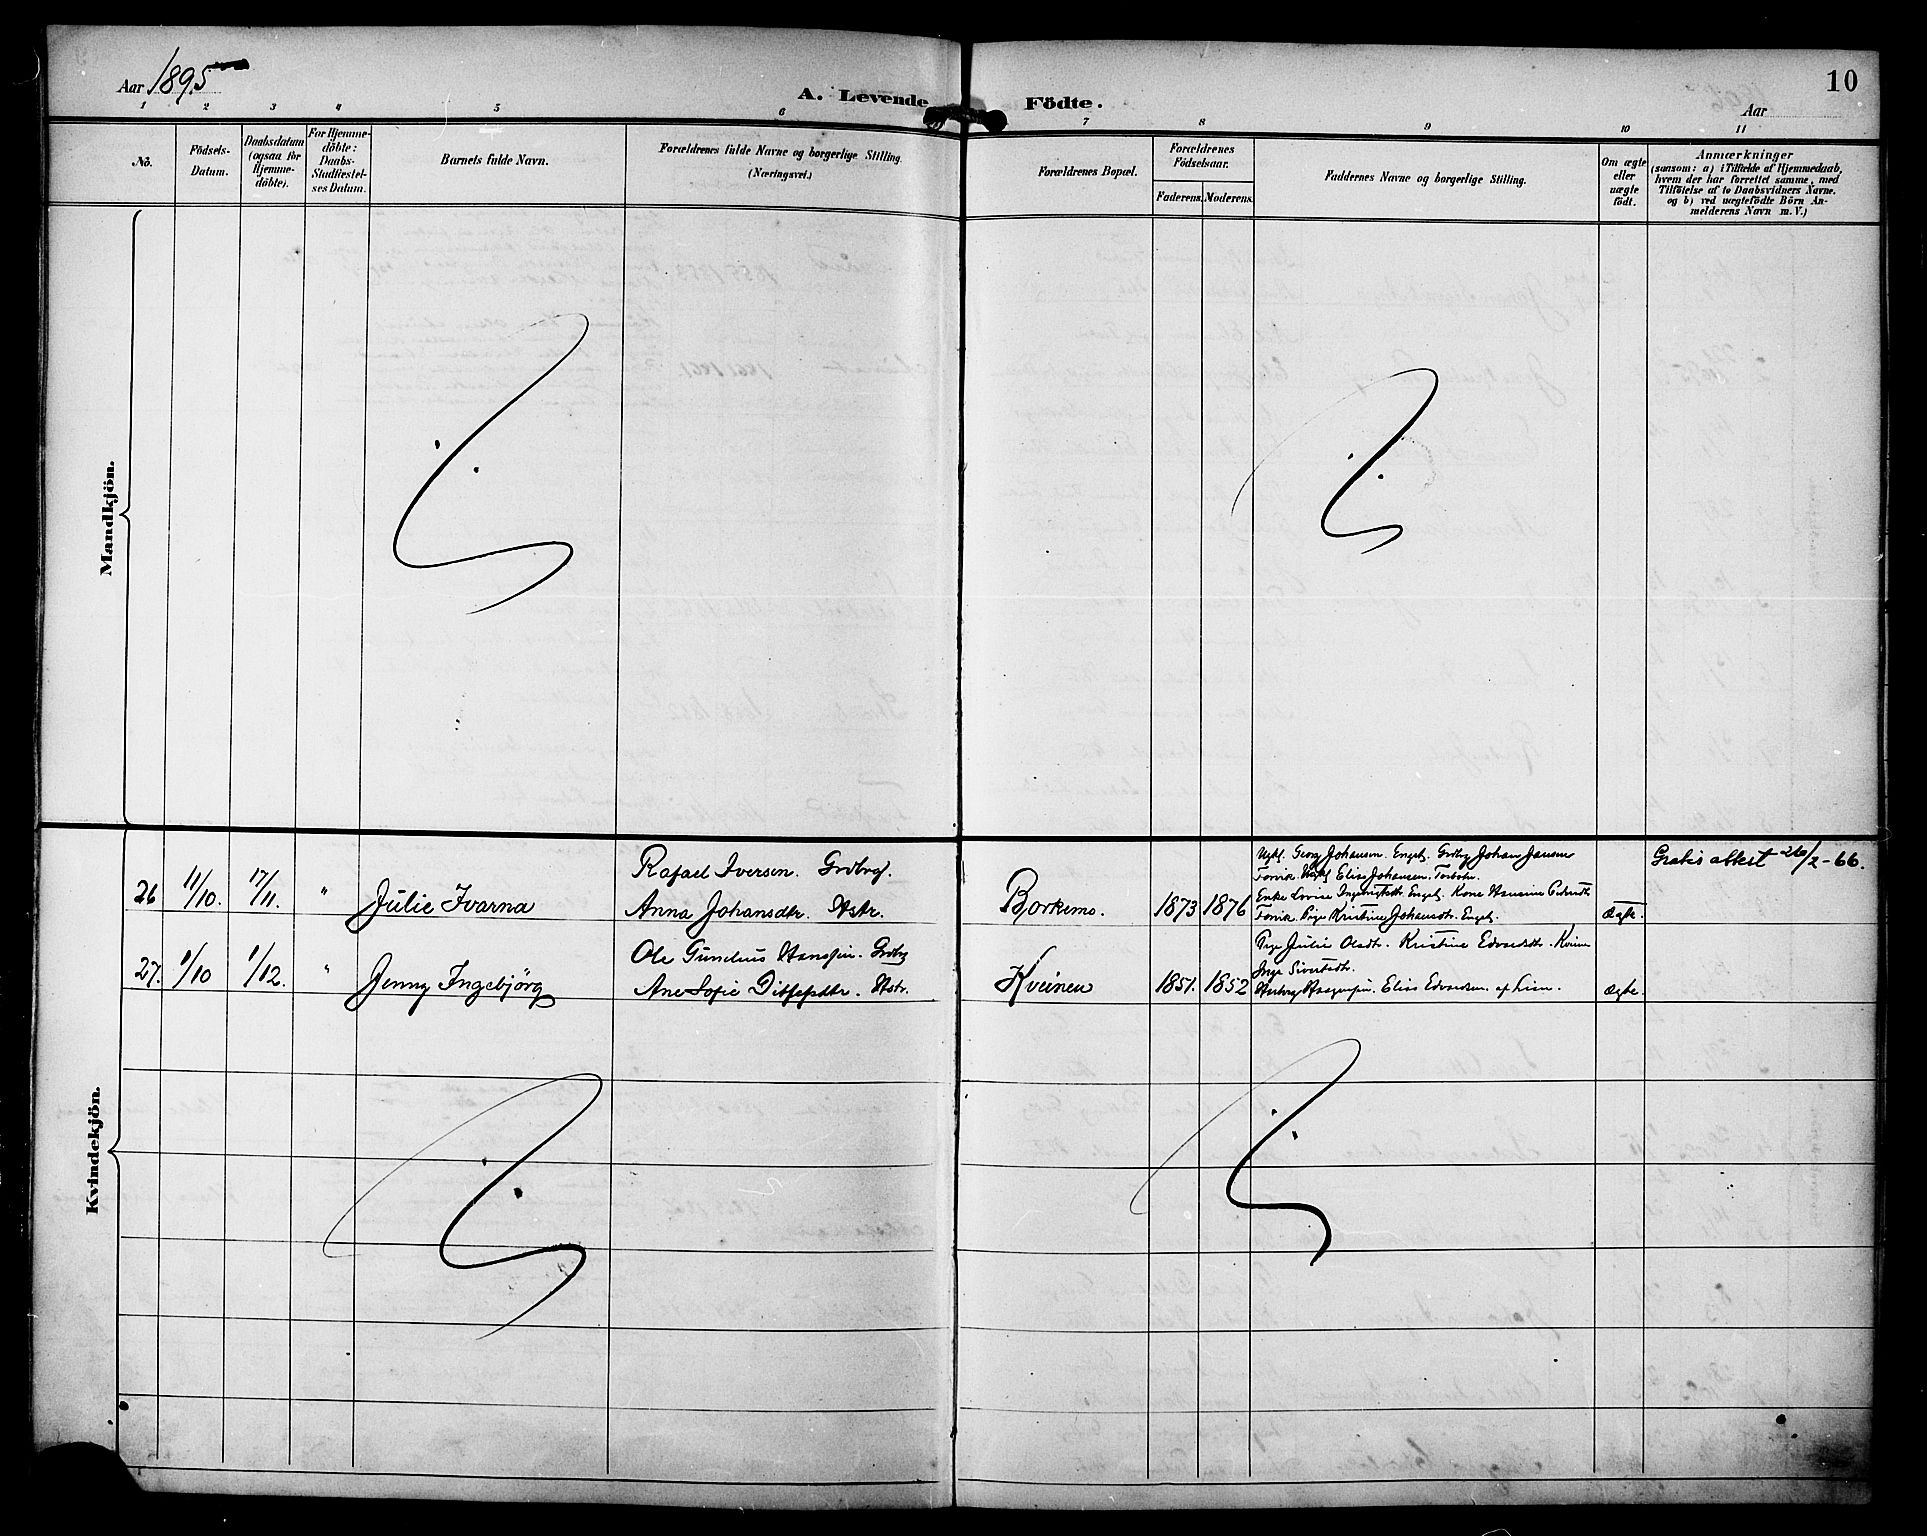 Aar 1895
A. Levende Födte.
10
Aar
1 2 3 4 5 6 7 8 9 10 11
No.
Födsels-
Datum.
Daabsdatum
(ogsaa for
Hjemme-
döbte).
For Hjemme-
döbte:
Daabs-
Stadfæstel-
ses Datum.
Barnets fulde Navn.
Forældrenes fulde Navne og borgerlige Stilling.
(Næringsvei.)
Forældrenes Bopæl.
Forældrenes
Födselsaar.
Faderens. Moderens.
Faddernes Navne og borgerlige Stilling.
Om ægte
eller
uægte
födt.
Anmærkninger
(saasom: a) i Tilfælde af Hjemmedaab,
hvem der har forrettet samme, med
Tilföielse af to Daabsvidners Navne,
og b) ved uægtefödte Börn An-
melderens Navn m. V.)
Mandkjön.
Kvindekjön.
26 11/10. 17/11. " Julie Ivarna
Rafael Iversen. Grdbrf.
Anna Johansdtr. Hstr.
Borkemo. 1873 1876
Ugkf. Georg Johansen. Engelj. Grdbrg Johan Jansen
Forvik. Ugkf Elias Johansen.
Enke Lovise Engelj. Kone Hansine
Forvik. Pige Kristine Johansdtr. Engelj.
Ægte.
Gratis attest 26/2-66.
27. 1/10 1/12. " Jenny Ingebjörg
Ole Gunelius Hanssen. Grdbrg
Ane Sofie Ditlefsdtr. Hstr.
Kveinen 1851. 1852
Pige Julie Olsdtr. Kristine Edvardsdtr.
Inga Sivertsdtr.
Elias Edvardsen. af Lien.
Ægte.